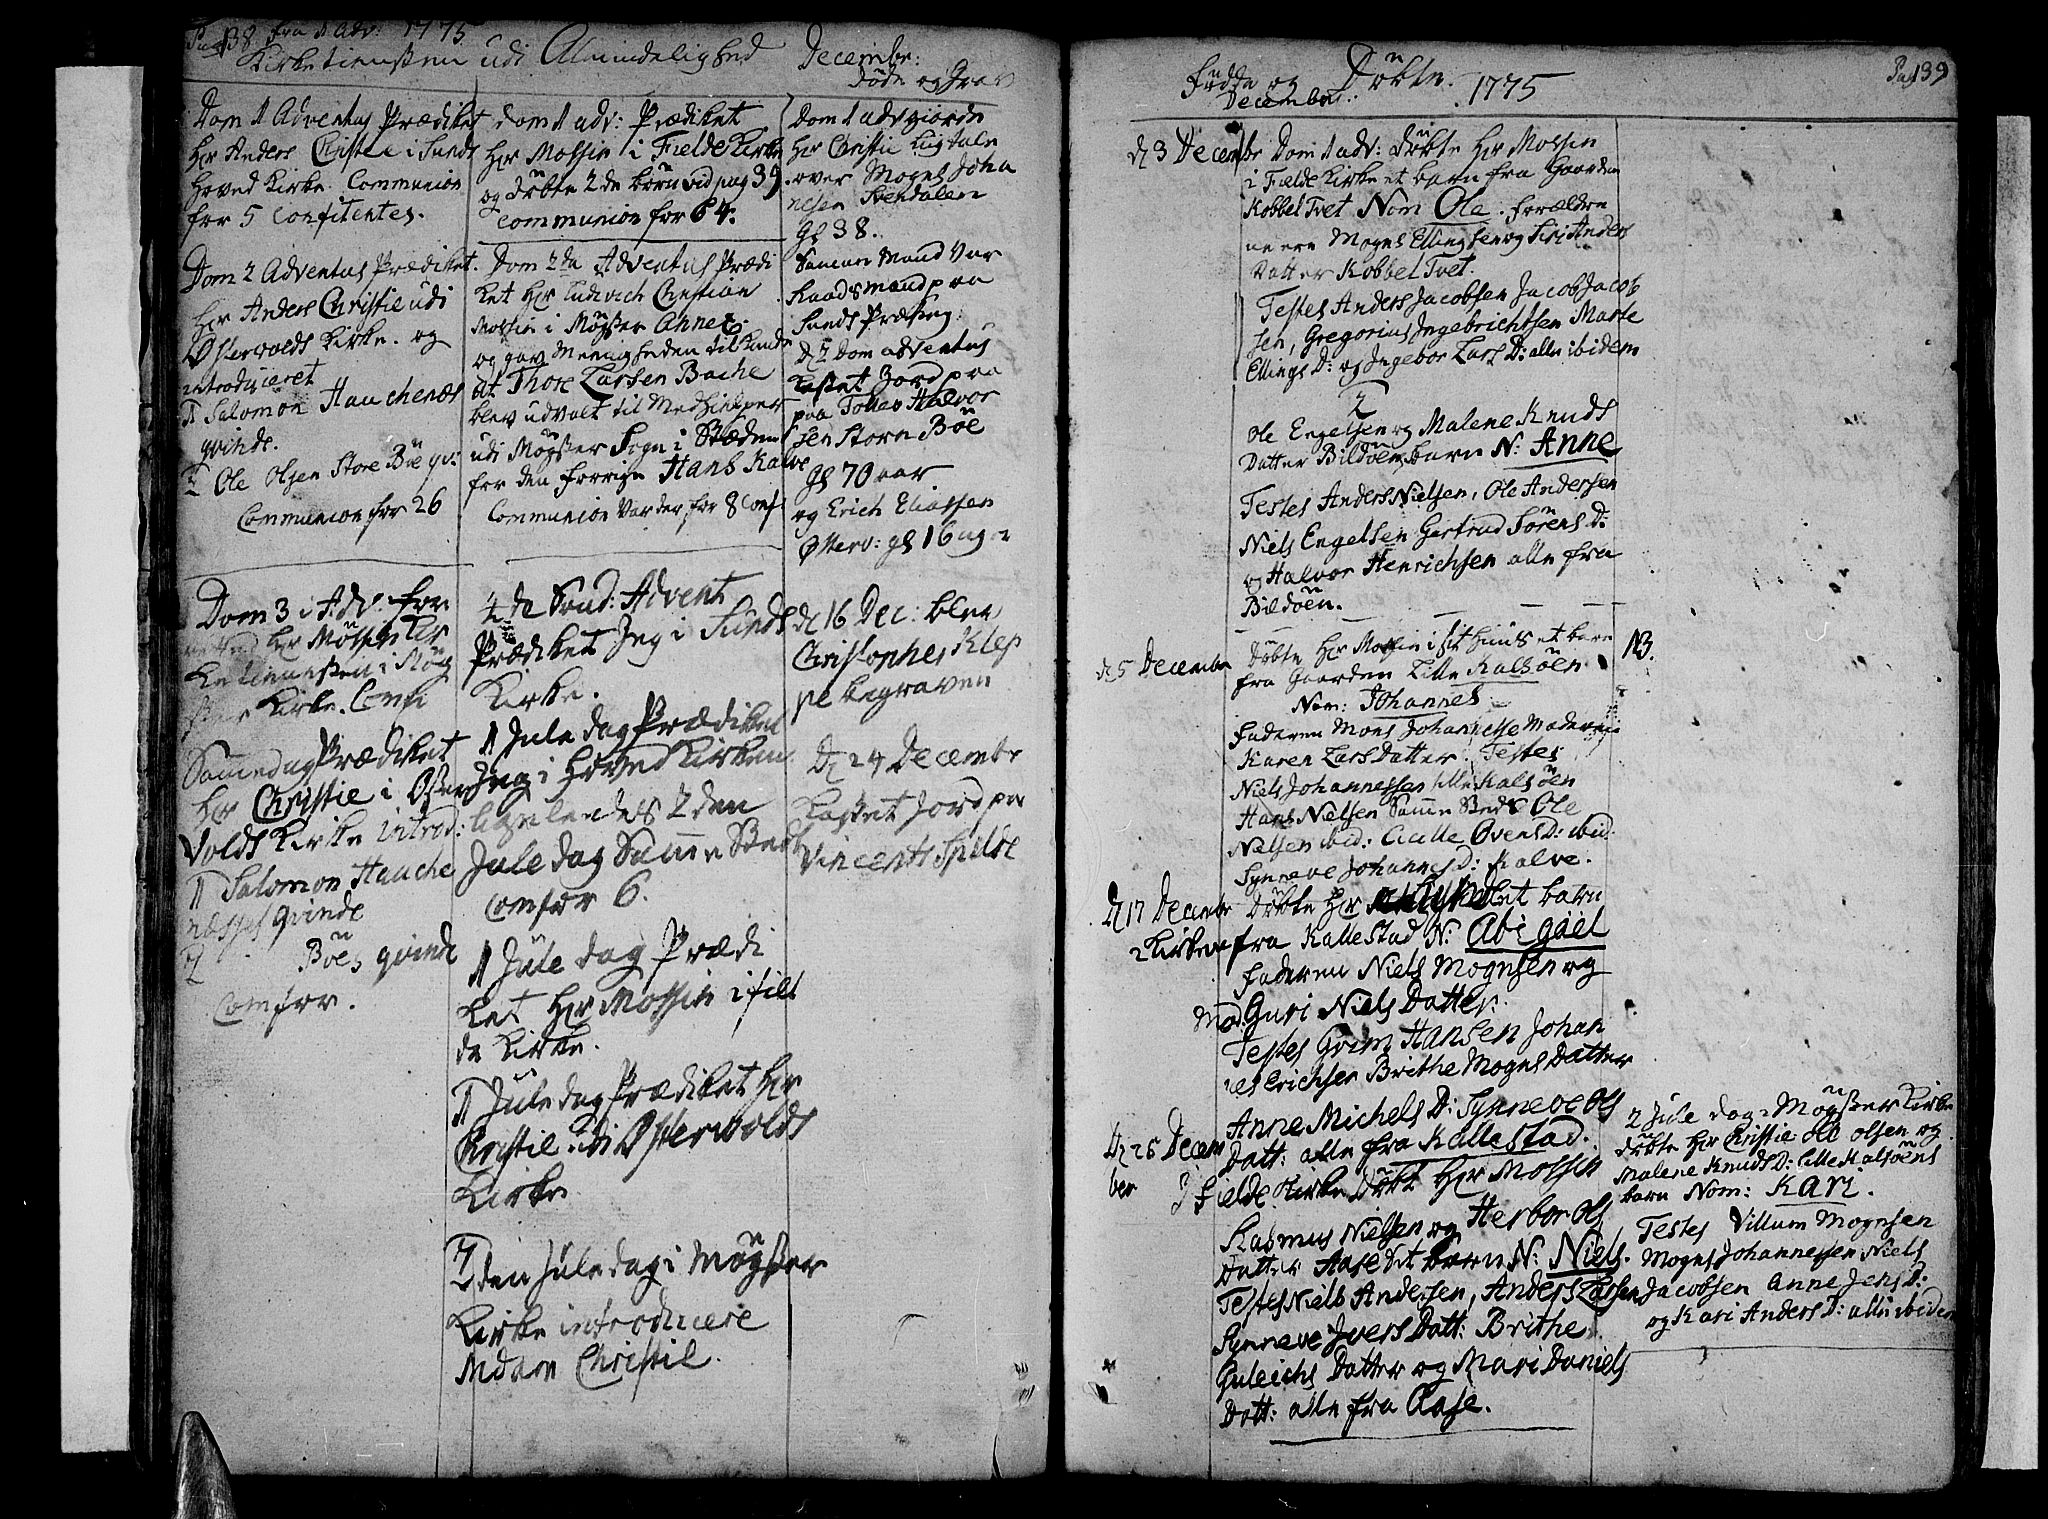 Pag 138 fra 1 Adv: 1775
Kirketienesten udi Almindelighed
Decembr:
Døde og
Dom 1 Adventus Prædiket
Hr Anders Christie i Sunds
Hoved Kirke. Communion
for 5 Confitentes.
Dom 2 Adventus Prædiket
Hr Anders Christie udi
Østerwolds Kirke. og
introduceret
1 Salomon Hauchenæs
qvinde.
2 Ole Olsen Store Böe qv:
Communion for 26
Dom 3 i Adv: for
Hr Mossin
i Møg
ster Kirke. Conf
Samme dag Prædiket
Hr Christie i Øster
Volds Kirke introd:
1 Salomon Hauche
næsses qvinde
2 Böes qvinde
Com for.
Dom 1 adv: Prædiket
Hr Mossin i Fielde Kirke
og döbte 2de börn vid pag 39.
Communion for 64.
Dom 2den Adventus Prædi
ket Hr Ludevich Christian
Mossin i Møgster Annex.
og gav Meenigheden tilkiende
at Thore Larsen Bache
blev udvalt til Medhielper
udi Møgster Sogn i Stæden
for den forrige Hans Kalve
Communion var der for 8 Conf
4de Sønd: Advent
Prædiket Jeg i Sunds
Kirke.
1 Jule dag Prædiket
Jeg i Hoved Kirken
ligeledes 2den
Jule dag Samme Sted
Com for 6.
1 Jule dag Prædi
ket Hr Mossin i Fiel
de Kirke.
1 Jule dag Prædiket Hr
Christie udi Østerwolds
Kirke
2den Juledag i Møgster
Kirke introducere
Madam Christie.
Dom 1 adv giorde
Hr Christie Liigtale
over Mogns Joha
nesen Steendalen
Gl 38.
Samme Mand Var
Raadsmand paa
Sunds Præsteg:
d 2 Dom adventus
Kastet Jord paa
paa Tollev Halvor
sen Store Böe
Gl 70 aar
og Erich Eliassen
Østerv: gl 16 uger
d 16 Dec: blev
Christopher Klep
pe begraven
D 24 Decembr
Kastet Jord paa
Vincents Spilde
Födde og Döbte. 1775
Decembr:
Pag 139
d 3 Decembr Dom 1 adv: Döbte Hr Mossin
i Fielde Kirke et barn fra Gaarden
Kobbel Tvet Nom Ole. Forældre
ne ere Mogns Ellingsen og Siri Anders
Datter Kobbel Tvet.
Testes Anders Jacobsen Jacob Jacob
sen, Gregorius Ingebrichtsen Marte
Ellings D: og Ingebor Lars D: alle ibidem
2
Ole Engelsen og Malene Knuds
Datter Bildöen barn N: Anne
Testes Anders Nielsen, Ole Andersen
Niels Engelsen Gertrud Sörens D:
og Halvor Henrichsen alle fra
Bildöen.
d 5 Decembr Döbte Hr Mossin i sit Huus et barn
fra Gaarden Lille Kalsöen.
Nom: Johannes
Faderen Mons Johannesse Moderen
Karen Lars Datter. Testes
Niels Johannessen lille Kalsöen
Hans Nielsen Samme Steds Ole
Nielsen ibid: Ovens D: ibid.
Synneve Johannes D: Kalve.
13.
D 17 Decembr Döbte Hr et barn
fra Kallestad N: Abigael
Faderen Niels Mognsen og
Mod: Guri Niels Datter.
Testes Grim Hansen Johan
nes Erichsen Brithe Mogns Datter
Anne Michels D: Synneve Ols
Datt: alle fra Kallestad.
D 26 Decem
ber
I Fielde Kirke Döbt Hr Mossin
Rasmus Nielsen og Herbor Ols
Datter Aase det barn N: Niels.
Testes Niels Andersen, Anders Larsen
Synneve Ivers Datt: Brithe
Guleichs Datter og Mari Daniels
Datt: alle fra Aase.
2 Jule dag i Møgster Kirke
döbte Hr Christie Ole Olsen og
Malene Knuds D: lille Kalsöens
barn Nom: Kari.
Testes Villum Mognsen
Mogns Johannessen Niels
Jacobsen Anne Jens D:
og Kari Anders D: alle ibidem